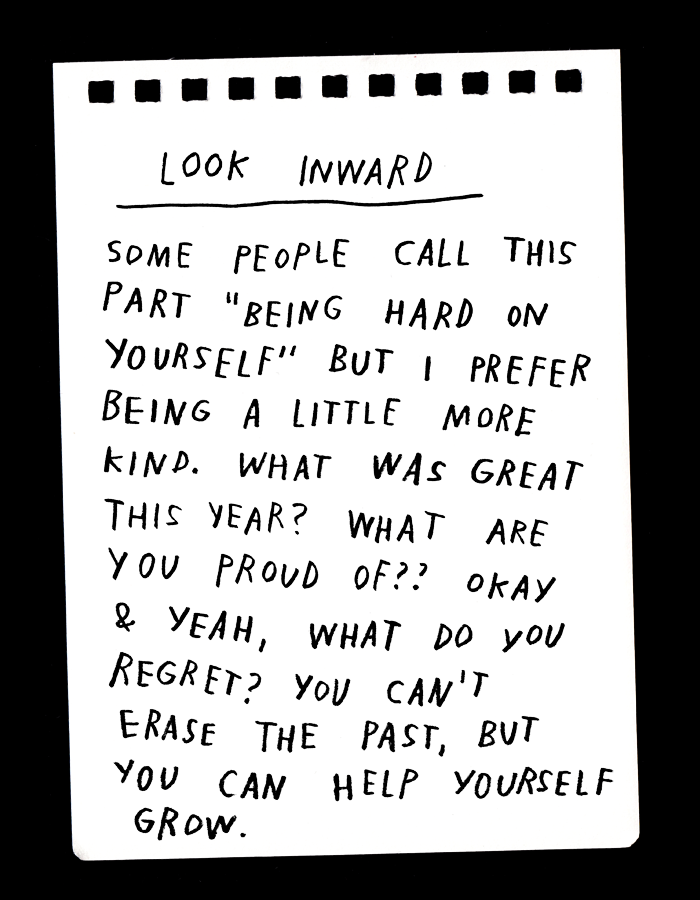 LOOK INWARD
SOME PEOPLE CALL THIS
PART "BEING HARD ON
YOURSELF" BUT I PREFER
BEING A LITTLE MORE
KIND. WHAT WAS GREAT
THIS YEAR? WHAT ARE
YOU PROUD OF?? OKAY
& YEAH, WHAT DO YOU
REGRET? YOU CAN'T
ERASE THE PAST, BUT
YOU CAN HELP YOURSELF
GROW.